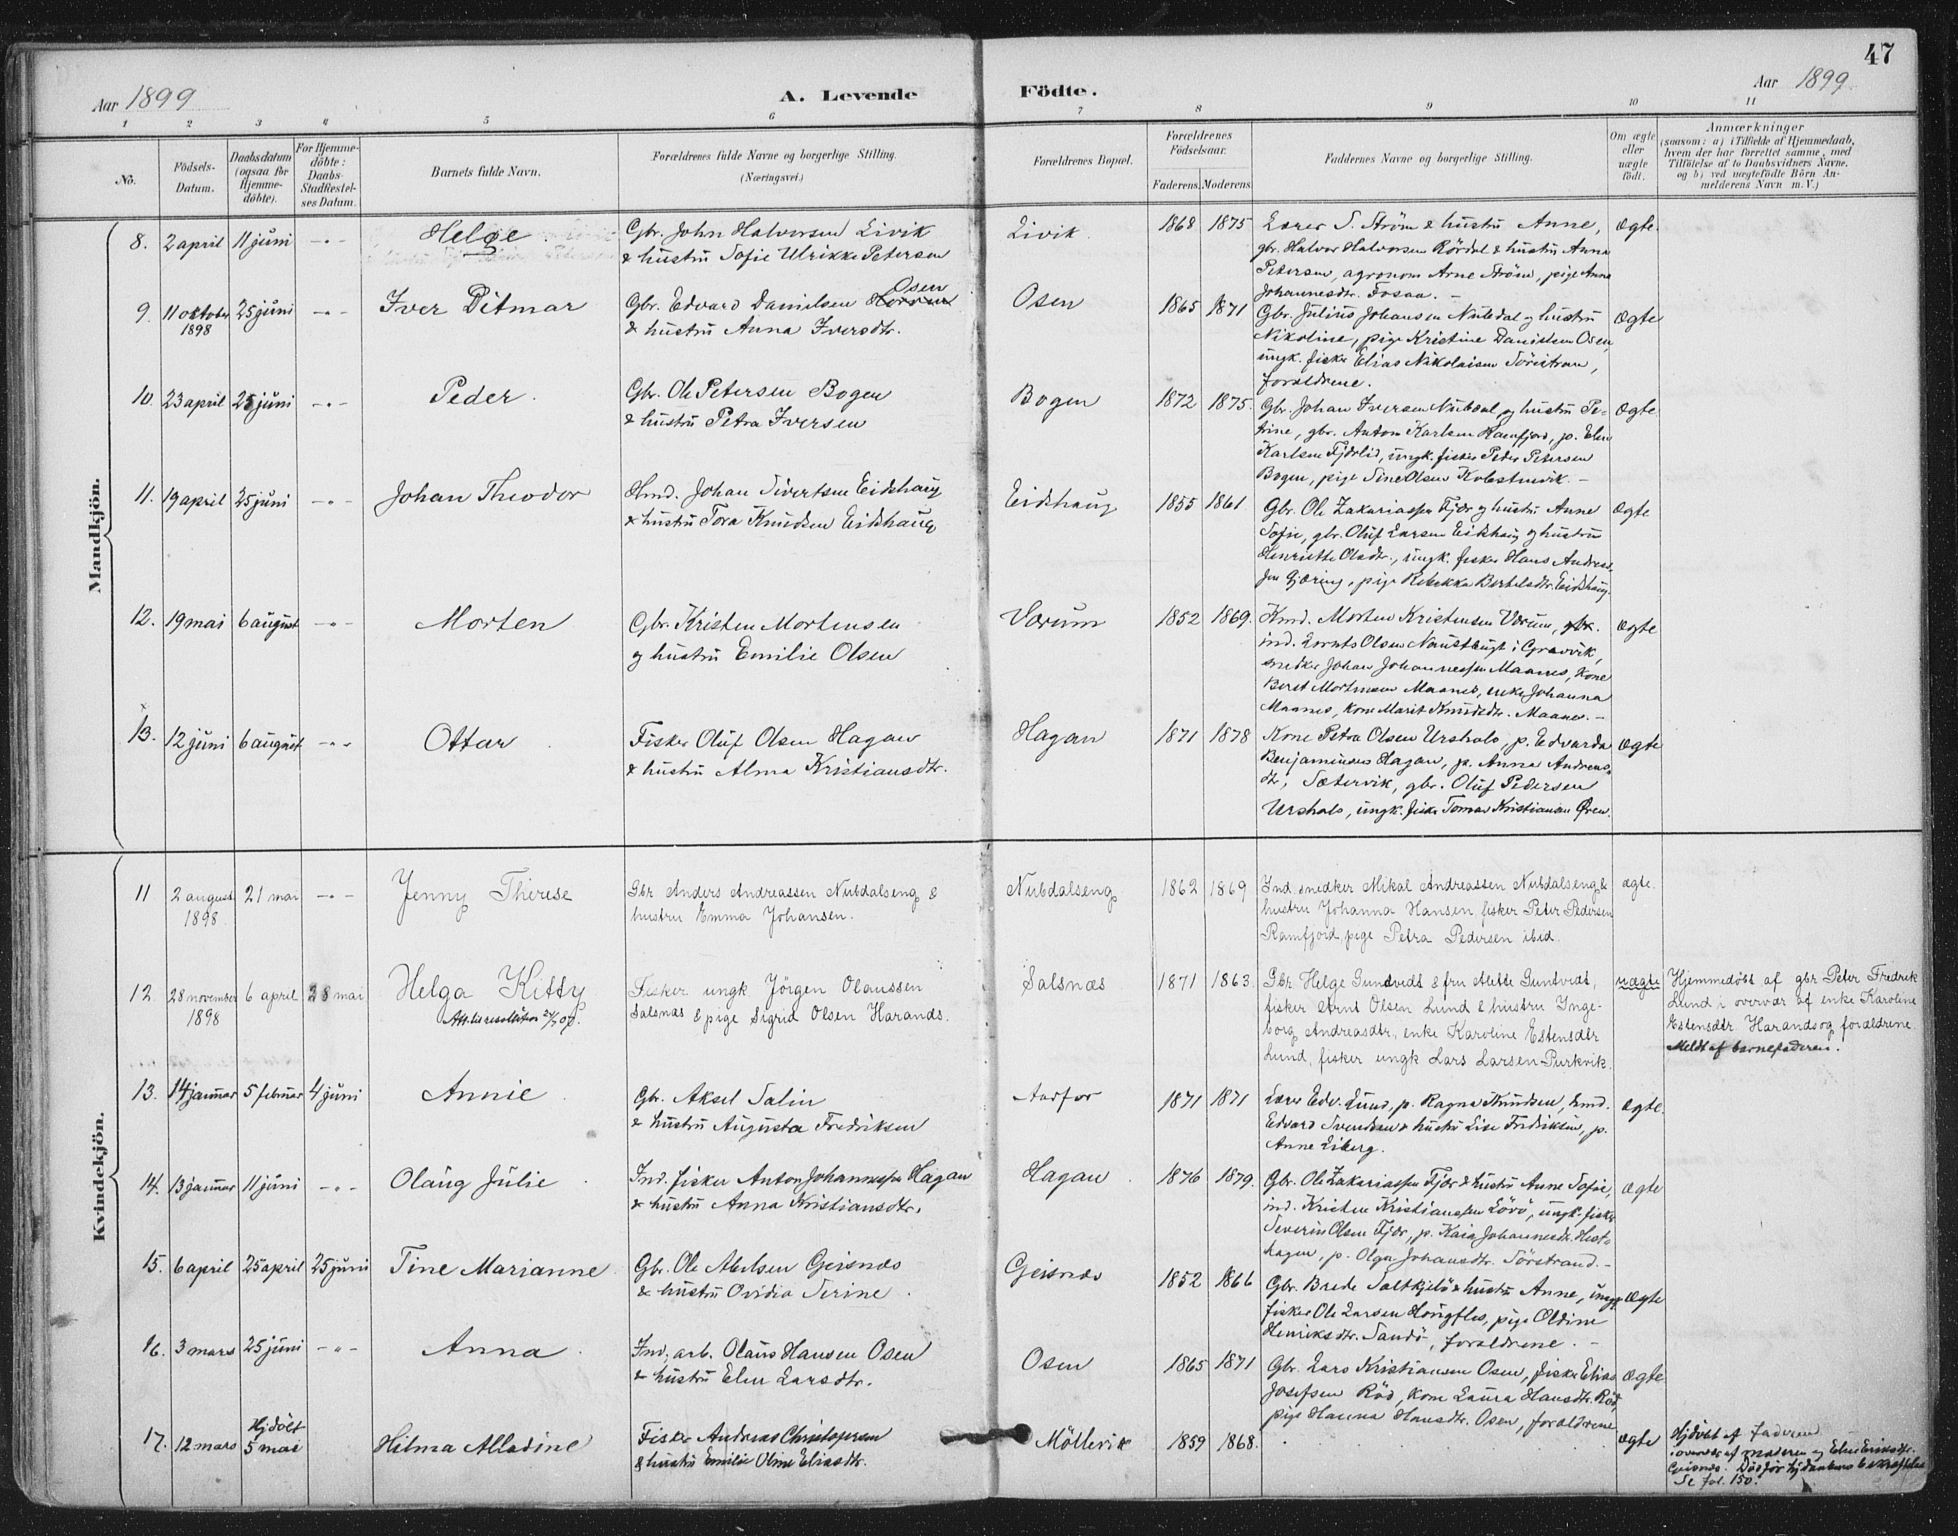 47
Aar 1899
A. Levende Födte.
Aar 1899.
1 2 3 4 5 6 7 8 9 10 11
No.
Födsels-
Datum.
Daabsdatum
(ogsaa for
Hjemme-
döbte).
For Hjemme-
döbte:
Daabs-
Stadfæstel-
ses Datum.
Barnets fulde Navn.
Forældrenes fulde Navne og borgerlige Stilling.
(Næringsvei.)
Forældrenes Bopæl.
Forældrenes
Födselsaar.
Faderens. Moderens.
Faddernes Navne og borgerlige Stilling.
Om ægte
eller
uægte
født.
Anmærkninger
(saasom: a) i Tilfælde af Hjemmedaab,
hvem der har forrettet samme, med
Tilføielse af to Daabsvidners Navne,
og b) ved uægtefödte Börn An-
melderens Navn m. V.)
Mandkjön.
8. 2 april 11 juni -"- Helge
Gbr. John Halvorsen Livik
& hustru Sofie Ulrikke Petersen
Livik 1868 1875
Lærer S. Ström & hustru Anne,
gbr. Halvor Halvorsen Rördal & hustru Anna
Petersen, agronom Arne Ström, pige Anna
Johannesdtr. Fosaa. -
Ægte.
9. 11 oktober 1898 25 juni -"- Iver Ditmar
Osen
Gbr. Edvard Danielsen
& hustru Anna Iversdtr.
Osen 1865 1871
Gbr. Julius Johansen Nubdal og hustru
Nikoline, pige Kristine Danielsen Osen,
ungk. fisker Elias Nikolaisen Sörstran,
forældrene.
Ægte
10. 23 april 25 juni -"- Peder
Gbr. Ole Petersen Bogen
& hustru Petra Iversen
Bogen 1872 1875.
Gbr. Johan Iversen Nubdal og hustru Pe-
trine, gbr. Anton Karlsen Ramfjord, p. Elen
Karlsen Fjærlid, ungk. fisker Peder Petersen
Bogen, pige Sine Olsen -
Ægte
11. 19 april 25 juni -"- Johan Theodor
Hmd. Johan Sivertsen Eidshaug
& hustru Tora Knudsen Eidshaug
Eidshaug 1855 1861
Gbr. Ole Zakariassen Fjær og hustru Anne
Sofie, gbr. Oluf Larsen Eidshaug og hustru
Henriette Olsdtr., ungk. fisker Hans Andreas-
sen Gjæring, pige Rebekka Bertelsdtr. Eidshaug.
Ægte
12. 19 mai 6 august -"- Morten
Gbr. Kristen Mortensen
og hustru Emilie Olsen
Værum 1852 1869.
Kmd. Morten Kristensen Værum, gbr.
ind. Lornts Olsen i Gravvik,
snedker Johan Johannessen Maanes, kone
Beret Mortensen Maanes, enke Johanna
Maanes, kone Marit Knudsdtr. Maanes. -
ægte
13. 12 juni 6 august -"- Ottar
Fisker Oluf Olsen Hagan
& hustru Alma Kristiansdtr.
Hagan 1871 1878
Kone Petra Olsen Urshals, p. Edvarda
Benjaminsen Hagan, p. Anna Andreas-
dtr, Sætervik, gbr. Oluf Pedersen
Urshals, ungk. fisker Tomas Kristiansen Øren.
ægte
Kvindekjön.
11 2 august 1898 21 mai -"- Jenny Therese
Gbr Anders Andreassen Nubdalseng &
hustru Emma Johansen.
Nubdalseng 1862 1869
Ind. snedker Mikal Andreassen Nubdalseng &
hustru Johanna Hansen, fisker Peter Pedersen
Ramfjord, pige Petra Pedersen ibid.
ægte.
12. 28 november 1898 6 april 28 mai Helga Kitty
Fisker ungk Jörgen Olaussen
Salsnæs & pige Sigrid Olsen Harands.
Salsnæs 1871 1863.
Gbr Helge Gundvedt & fru Mette Gundvedt,
fisker Arnt Olsen Lund & hustru Inge-
borg Andreasdtr, enke Karoline Estensdtr
Lund, fisker ungk Lars Larsen Purkvik.
uægte
Hjemmedøbt af gbr Peter Fredrik
Lund i overvær af enke Karoline
Estensdtr. Harands og forældrene.
Meldt af barnefaderen.
13. 14 januar 5 februar 4 juni Annie
Gbr. Aksel Salin
& hustru Augusta Fredriksen
Aarfor 1871 1871
Lærer Edv. Lund, p. Ragna Knudsen, hmd.
Edvard Svendsen & hustru Lise Fredriksen, p.
Anne Eiberg.
Ægte.
14. 13 januar 11 juni -"- Olaug Julie
Ind. fisker Anton Johannessen Hagan
& hustru Anna Kristiansdtr.
Hagan 1876 1879.
Gbr. Ole Zakariassen Fjær & hustru Anne Sofie,
ind. Kristen Kristianssen Lövö, ungk. fisker
Severin Olsen Fjær, p. Kaia Johannesdtr. Hest-
hagen, p. Olga Johansdtr. Sörstrand. -
ægte
15. 6 april 25 april 25 juni Tine Marianne
Gbr. Ole Abelsen Geisnæs
& hustru Ovidia Serine.
Geisnæs 1852 1866
Gbr. Brede Saltkjelö & hustru Anne, ungk.
fisker Ole Larsen, pige Oldine
Henriksdtr. Sandö, forældrene. -
Ægte
16. 3 mars 25 juni -"- Anna
Ind. arb. Olaus Hansen Osen
& hustru Elen Larsdtr.
Osen 1865 1871
Gbr. Lars Kristiansen Osen, fisker Elias
Josefsen Röd, kone Laura Hansdtr. Röd,
pige Hanna Hansdtr. Osen, forældrene
ægte
17. 12 mars Hjdöbt 5 mai Hilma Alladine
Fisker Andreas Christophersen
& hustru Emilie Oline Eliasdtr.
Möllevik 1859 1868.
ægte
Hjdöbt af faderen
i overvær af moderen og Elen Eriksdtr.
Geisnæs. Död før hjdaabens bekræftelse
Se fol. 150.